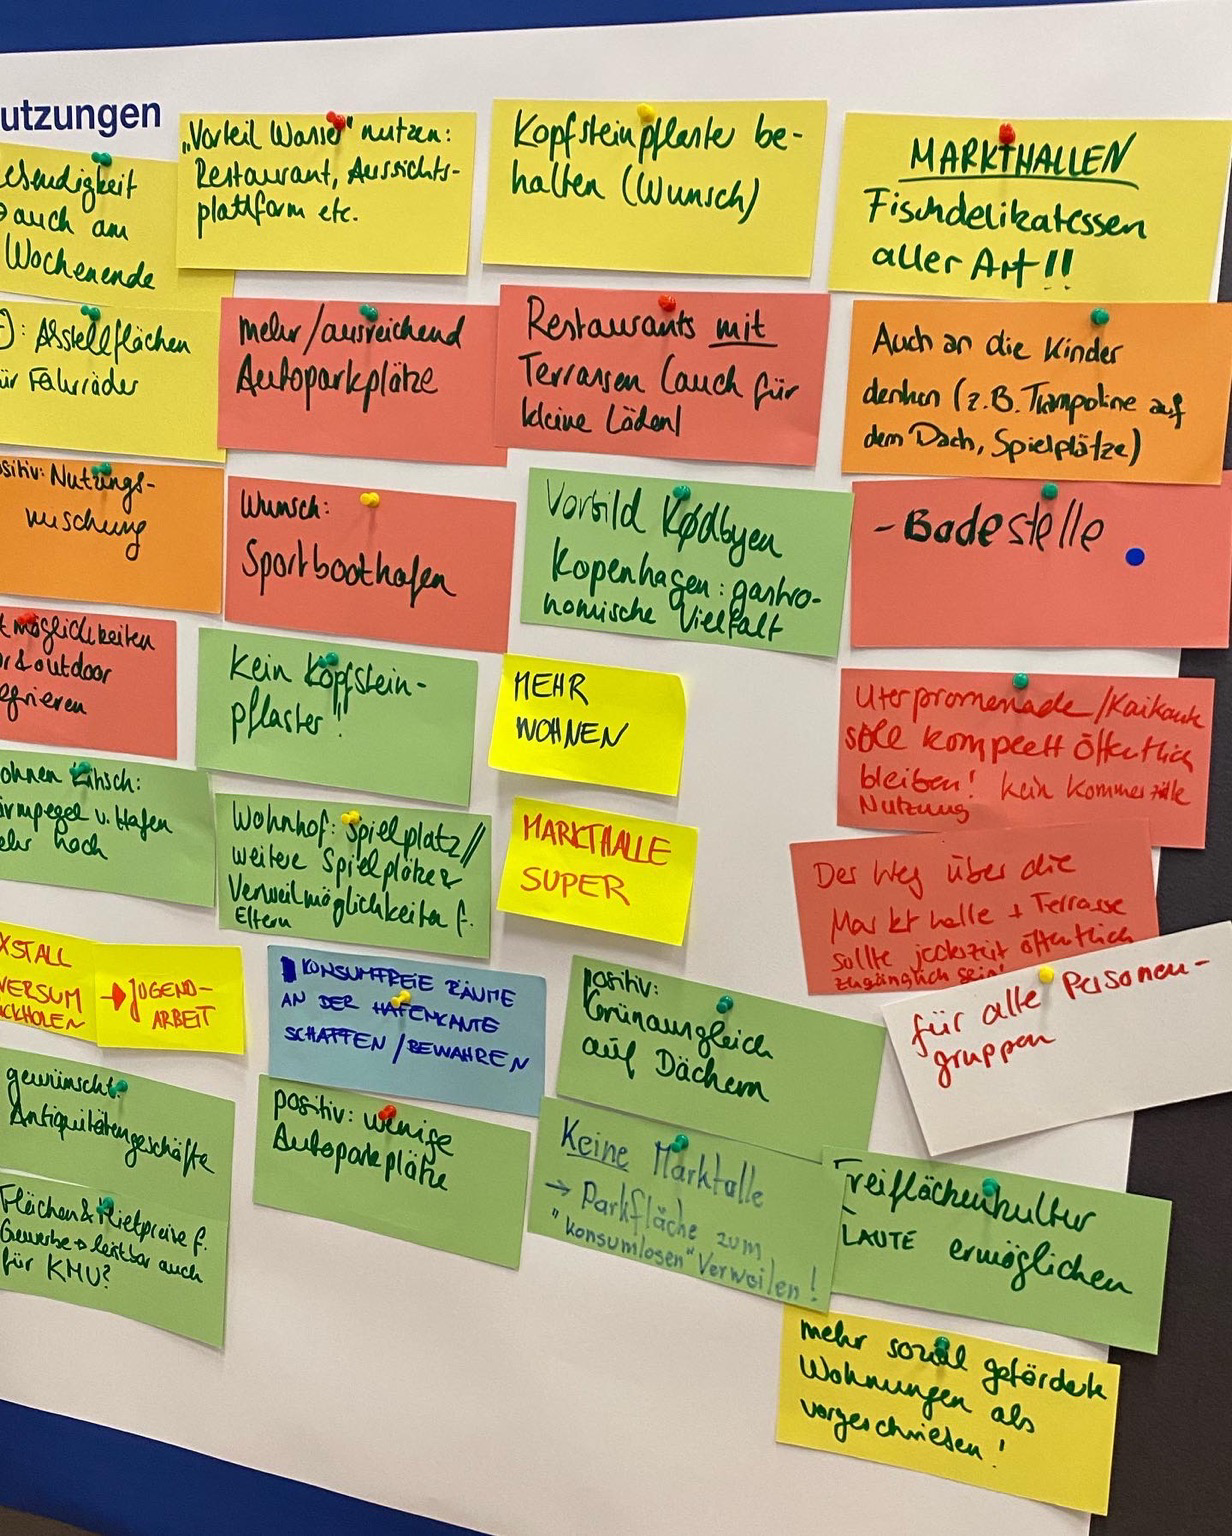 utzungen
auch am
Wochenende
"Vorteil Wasser" nutzen:
Restaurant, Aussichts-
plattform etc.
Kopfsteinpflaster be-
halten (Wunsch)
MARKTHALLEN
Fischdelikatessen
aller Art!!
: Abstellflächen
ür Fahrräder
mehr/ausreichend
Autoparkplätze
Restaurants mit
Terrassen (auch für
kleine Läden)
Auch an die Kinder
denken (z.B. Trampoline auf
dem Dach, Spielplätze)
ositiv: Nutzungs-
mischung
Wunsch:
Sportboothafen
Vorbild Kødbyen
Kopenhagen: gastro-
nomische Vielfalt
- Badestelle
t möglichkeiten
r & outdoor
egrieren
Kein Kopfstein-
pflaster!
MEHR
WOHNEN
Uferpromenade/Kaikante
solle komplett öffentlich
bleiben! kein kommerzielle
Nutzung
ohnen
ärmpegel v. Hafen
ehr hoch
Wohnhof: Spielplatz//
weitere Spielplätze &
Verweilmöglichkeiten f.
Eltern
MARKTHALLE
SUPER
Der Weg über die
Markthalle + Terrasse
sollte jederzeit öffentlich
zugänglich sein!
für alle Personen-
gruppen
XSTALL
VERSUM
CKHOLEN
→ JUGEND-
ARBEIT
KONSUMFREIE RÄUME
AN DER HAFENKANTE
SCHAFFEN/BEWAHREN
positiv:
Grünausgleich
auf Dächern
gewünscht:
Antiquitätengeschäfte
positiv: wenige
Autoparkplätze
Keine Markthalle
→ Parkfläche zum
"konsumlosen" Verweilen!
Freiflächenkultur
LAUTE ermöglichen
Flächen & Mietpreise f.
Gewerbe → leistbar auch
für KMU?
mehr sozial geförderte
Wohnungen als
vorgeschrieben!